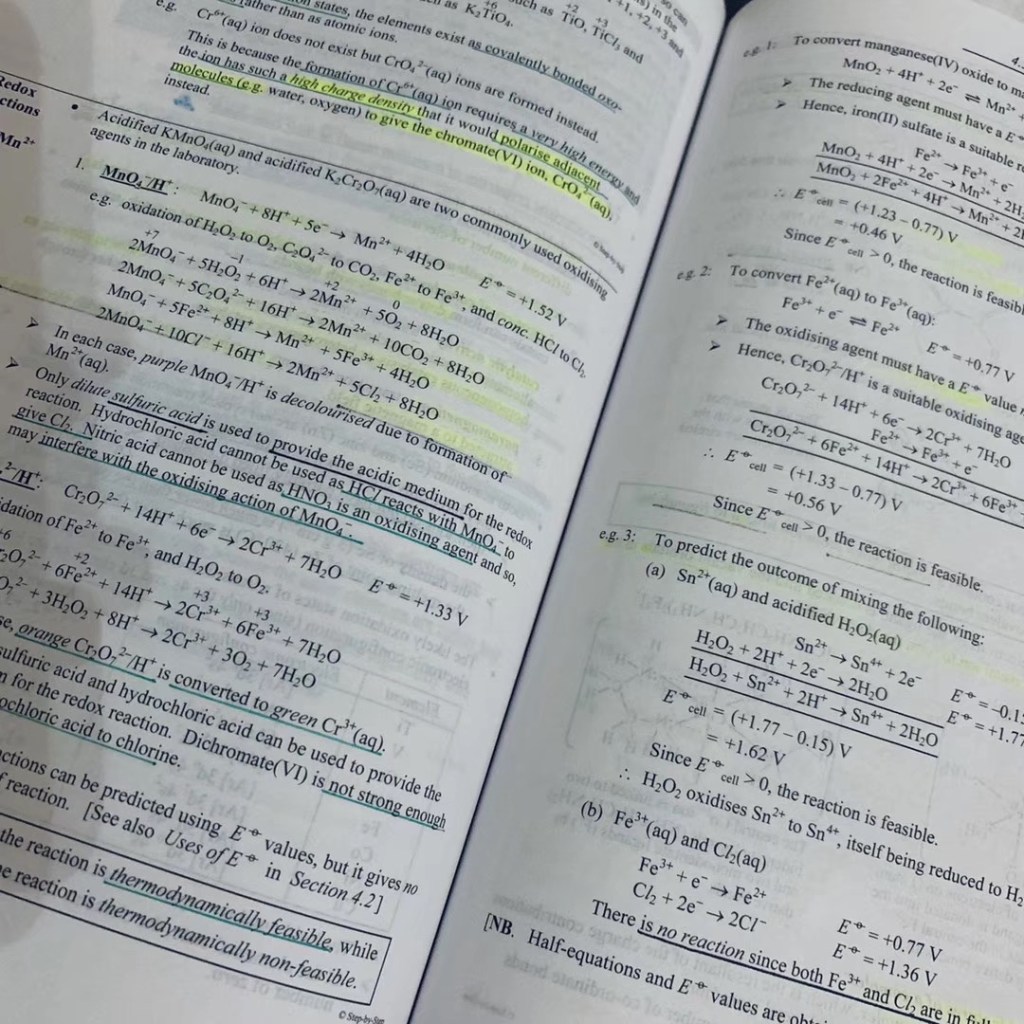 such as TiO, TiCl₃ and
as K₂TiO₄.
states, the elements exist as covalently bonded oxo-
rather than as atomic ions.
e.g. Cr⁶⁺(aq) ion does not exist but CrO₄²⁻(aq) ions are formed instead.
This is because the formation of Cr⁶⁺(aq) ion requires a very high energy and
the ion has such a high charge density that it would polarise adjacent
molecules (e.g. water, oxygen) to give the chromate(VI) ion, CrO₄²⁻(aq),
instead.
Redox
ctions
Mn²⁺
• Acidified KMnO₄(aq) and acidified K₂Cr₂O₇(aq) are two commonly used oxidising
agents in the laboratory.
1. MnO₄⁻/H⁺: MnO₄⁻ + 8H⁺ + 5e⁻ → Mn²⁺ + 4H₂O E⦵ = +1.52 V
e.g. oxidation of H₂O₂ to O₂, C₂O₄²⁻ to CO₂, Fe²⁺ to Fe³⁺, and conc. HCl to Cl₂.
+7 -1 +2 0
2MnO₄⁻ + 5H₂O₂ + 6H⁺ → 2Mn²⁺ + 5O₂ + 8H₂O
2MnO₄⁻ + 5C₂O₄²⁻ + 16H⁺ → 2Mn²⁺ + 10CO₂ + 8H₂O
MnO₄⁻ + 5Fe²⁺ + 8H⁺ → Mn²⁺ + 5Fe³⁺ + 4H₂O
2MnO₄⁻ + 10Cl⁻ + 16H⁺ → 2Mn²⁺ + 5Cl₂ + 8H₂O
➢ In each case, purple MnO₄⁻/H⁺ is decolourised due to formation of
Mn²⁺(aq).
➢ Only dilute sulfuric acid is used to provide the acidic medium for the redox
reaction. Hydrochloric acid cannot be used as HCl reacts with MnO₄⁻ to
give Cl₂. Nitric acid cannot be used as HNO₃ is an oxidising agent and so,
may interfere with the oxidising action of MnO₄⁻.
²⁻/H⁺: Cr₂O₇²⁻ + 14H⁺ + 6e⁻ → 2Cr³⁺ + 7H₂O E⦵ = +1.33 V
dation of Fe²⁺ to Fe³⁺, and H₂O₂ to O₂.
+6 +2 +3 +3
r₂O₇²⁻ + 6Fe²⁺ + 14H⁺ → 2Cr³⁺ + 6Fe³⁺ + 7H₂O
O₇²⁻ + 3H₂O₂ + 8H⁺ → 2Cr³⁺ + 3O₂ + 7H₂O
se, orange Cr₂O₇²⁻/H⁺ is converted to green Cr³⁺(aq).
sulfuric acid and hydrochloric acid can be used to provide the
n for the redox reaction. Dichromate(VI) is not strong enough
ochloric acid to chlorine.
actions can be predicted using E⦵ values, but it gives no
f reaction. [See also Uses of E⦵ in Section 4.2]
the reaction is thermodynamically feasible, while
e reaction is thermodynamically non-feasible.
© Step-by-Step
4.
e.g. 1: To convert manganese(IV) oxide to ma
MnO₂ + 4H⁺ + 2e⁻ ⇌ Mn²⁺ +
➢ The reducing agent must have a E⦵
➢ Hence, iron(II) sulfate is a suitable r
Fe²⁺ → Fe³⁺ + e⁻
MnO₂ + 4H⁺ + 2e⁻ → Mn²⁺ + 2H₂
MnO₂ + 2Fe²⁺ + 4H⁺ → Mn²⁺ + 2F
∴ E⦵cell = (+1.23 – 0.77) V
= +0.46 V
Since E⦵cell > 0, the reaction is feasibl
e.g. 2: To convert Fe²⁺(aq) to Fe³⁺(aq):
Fe³⁺ + e⁻ ⇌ Fe²⁺ E⦵ = +0.77 V
➢ The oxidising agent must have a E⦵ value
➢ Hence, Cr₂O₇²⁻/H⁺ is a suitable oxidising age
Cr₂O₇²⁻ + 14H⁺ + 6e⁻ → 2Cr³⁺ + 7H₂O
Fe²⁺ → Fe³⁺ + e⁻
Cr₂O₇²⁻ + 6Fe²⁺ + 14H⁺ → 2Cr³⁺ + 6Fe³⁺
∴ E⦵cell = (+1.33 – 0.77) V
= +0.56 V
Since E⦵cell > 0, the reaction is feasible.
e.g. 3: To predict the outcome of mixing the following:
(a) Sn²⁺(aq) and acidified H₂O₂(aq)
Sn²⁺ → Sn⁴⁺ + 2e⁻ E⦵ = –0.15
H₂O₂ + 2H⁺ + 2e⁻ → 2H₂O E⦵ = +1.77
H₂O₂ + Sn²⁺ + 2H⁺ → Sn⁴⁺ + 2H₂O
E⦵cell = (+1.77 – 0.15) V
= +1.62 V
Since E⦵cell > 0, the reaction is feasible.
∴ H₂O₂ oxidises Sn²⁺ to Sn⁴⁺, itself being reduced to H₂
(b) Fe³⁺(aq) and Cl₂(aq)
Fe³⁺ + e⁻ → Fe²⁺ E⦵ = +0.77 V
Cl₂ + 2e⁻ → 2Cl⁻ E⦵ = +1.36 V
There is no reaction since both Fe³⁺ and Cl₂ are in full
[NB. Half-equations and E⦵ values are